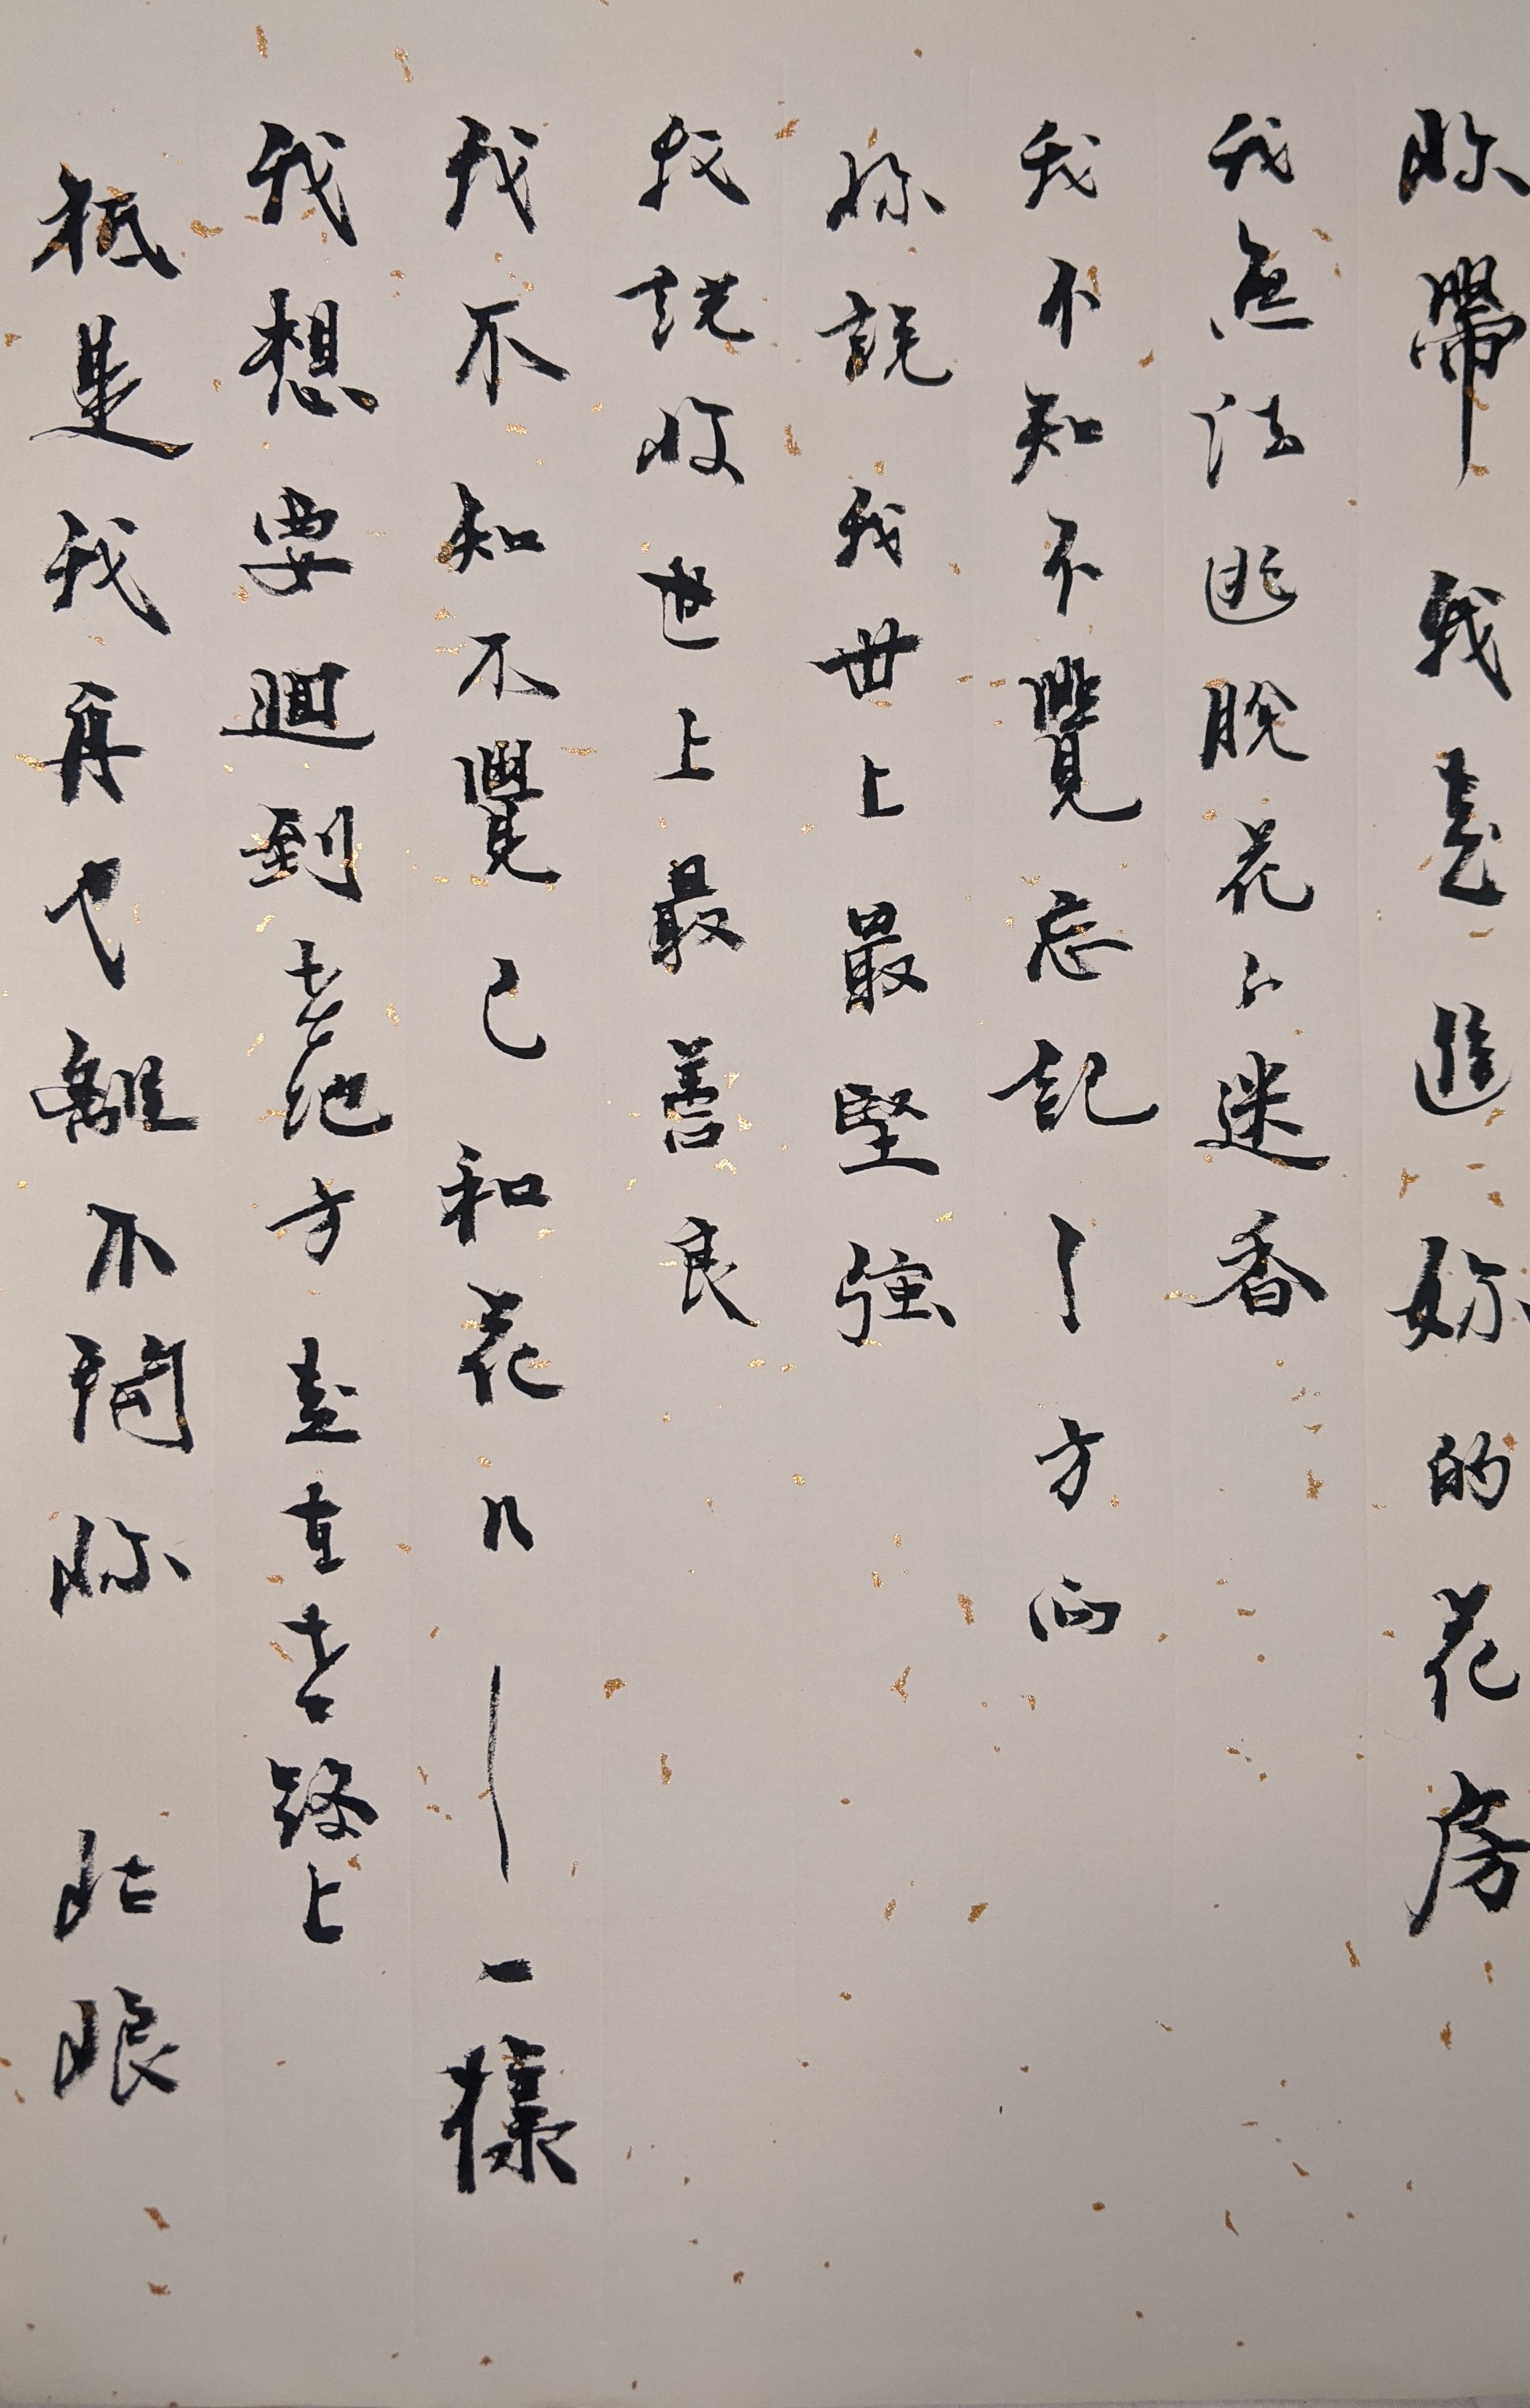 妳帶我走進妳的花房
我無法逃脫花的迷香
我不知不覺忘記了方向
妳說我世上最堅強
我說妳世上最善良
我不知不覺已和花儿一樣
我想要迴到老地方走在老路上
祇是我再也離不開妳 姑娘